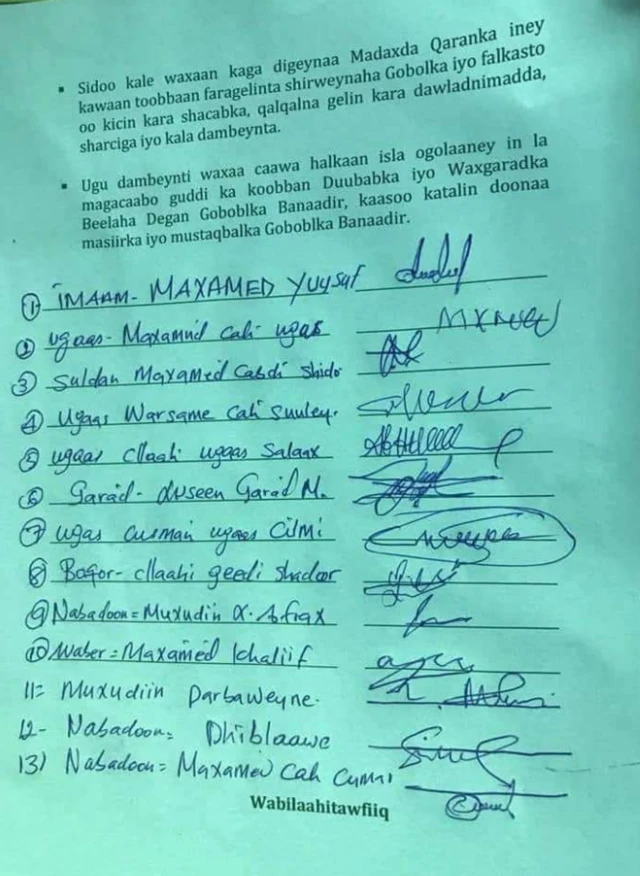 ▪ Sidoo kale waxaan kaga digeynaa Madaxda Qaranka iney
kawaan toobbaan faragelinta shirweynaha Gobolka iyo falkasto
oo kicin kara shacabka, qalqalna gelin kara dawladnimadda,
sharciga iyo kala dambeynta.
▪ Ugu dambeynti waxaa caawa halkaan isla ogolaaney in la
magacaabo guddi ka koobban Duubabka iyo Waxgaradka
Beelaha Degan Goboblka Banaadir, kaasoo katalin doonaa
masiirka iyo mustaqbalka Goboblka Banaadir.
① IMAAM- MAXAMED YUYSUF
② ugaas- Maxamud Cali ugas
③ Suldan Maxamed Cabdi Shido
④ Ugaas Warsame Cali Suuley.
⑤ ugaas Cllaahi ugaas Salaax
⑥ Garaad- Xuseen Garaad M.
⑦ ugas Cusman ugaas Cilmi
⑧ Boqor- Cllaahi geedi Shadoor
⑨ Nabadoon = Muxudin X. Afrax
⑩ Waber = Maxamed Khaliif
11= Muxudiin Darbaweyne.
12- Nabadoon= Dhiblaawe
13) Nabadoon= Maxamed Cali Cumar
Wabilaahitawfiiq